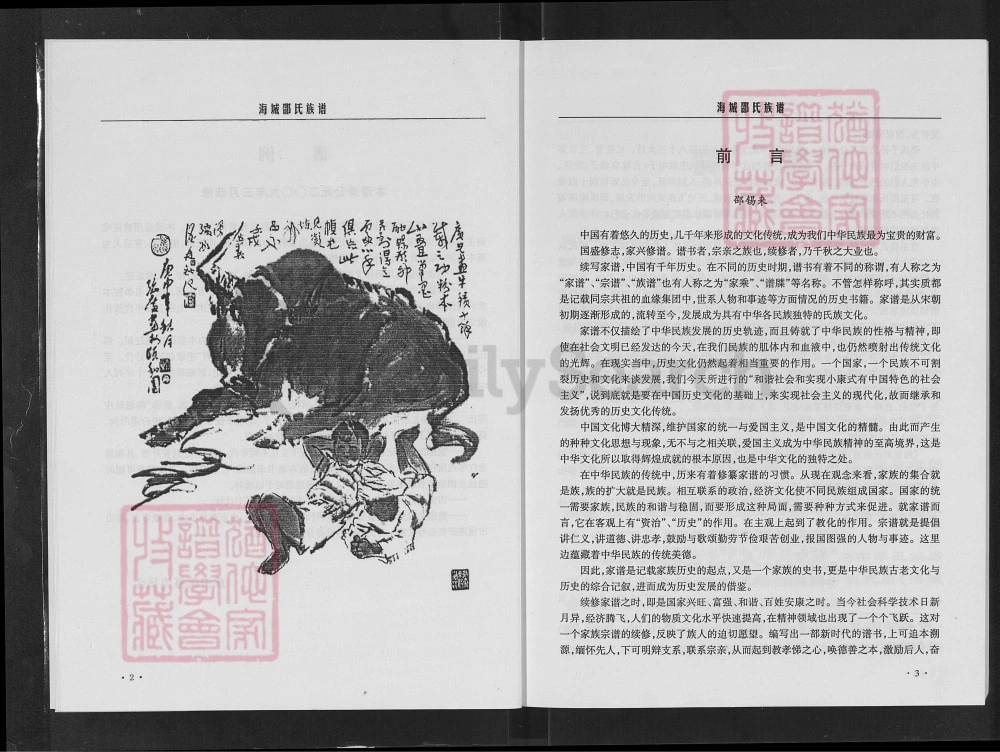 海城邵氏族谱
·2·
海城邵氏族谱
前 言
邵锡来
中国有着悠久的历史,几千年来形成的文化传统,成为我们中华民族最为宝贵的财富。
国盛修志,家兴修谱。谱书者,宗亲之族也,续修者,乃千秋之大业也。
续写家谱,中国有千年历史。在不同的历史时期,谱书有着不同的称谓,有人称之为
“家谱”、“宗谱”、“族谱”也有人称之为“家乘”、“谱牒”等名称。不管怎样称呼,其实质都
是记载同宗共祖的血缘集团中,世系人物和事迹等方面情况的历史书籍。家谱是从宋朝
初期逐渐形成的,流转至今,发展成为具有中华各民族独特的民族文化。
家谱不仅描绘了中华民族发展的历史轨迹,而且铸就了中华民族的性格与精神,即
使在社会文明已经发达的今天,在我们民族的肌体内和血液中,也仍然喷射出传统文化
的光辉。在现实当中,历史文化仍然起着相当重要的作用。一个国家,一个民族不可割
裂历史和文化来谈发展,我们今天所进行的“和谐社会和实现小康式有中国特色的社会
主义”,说到底就是要在中国历史文化的基础上,来实现社会主义的现代化,故而继承和
发扬优秀的历史文化传统。
中国文化博大精深,维护国家的统一与爱国主义,是中国文化的精髓。由此而产生
的种种文化思想与现象,无不与之相关联,爱国主义成为中华民族精神的至高境界,这是
中华文化所以取得辉煌成就的根本原因,也是中华文化的独特之处。
在中华民族的传统中,历来有着修纂家谱的习惯。从现在观念来看,家族的集合就
是族,族的扩大就是民族。相互联系的政治,经济文化使不同民族组成国家。国家的统
一需要家族,民族的和谐与稳固,而要形成这种局面,需要种种方式来促进。就家谱而
言,它在客观上有“资治”、“历史”的作用。在主观上起到了教化的作用。宗谱就是提倡
讲仁义,讲道德、讲忠孝,鼓励与歌颂勤劳节俭艰苦创业,报国图强的人物与事迹。这里
边蕴藏着中华民族的传统美德。
因此,家谱是记载家族历史的起点,又是一个家族的史书,更是中华民族古老文化与
历史的综合记叙,进而成为历史发展的借鉴。
续修家谱之时,即是国家兴旺、富强、和谐、百姓安康之时。当今社会科学技术日新
月异,经济腾飞,人们的物质文化水平快速提高,在精神领域也出现了一个个飞跃。这对
一个家族宗谱的续修,反映了族人的迫切愿望。编写出一部新时代的谱书,上可追本溯
源,缅怀先人,下可明辩支系,联系宗亲,从而起到教孝悌之心,唤德善之本,激励后人,奋
·3·